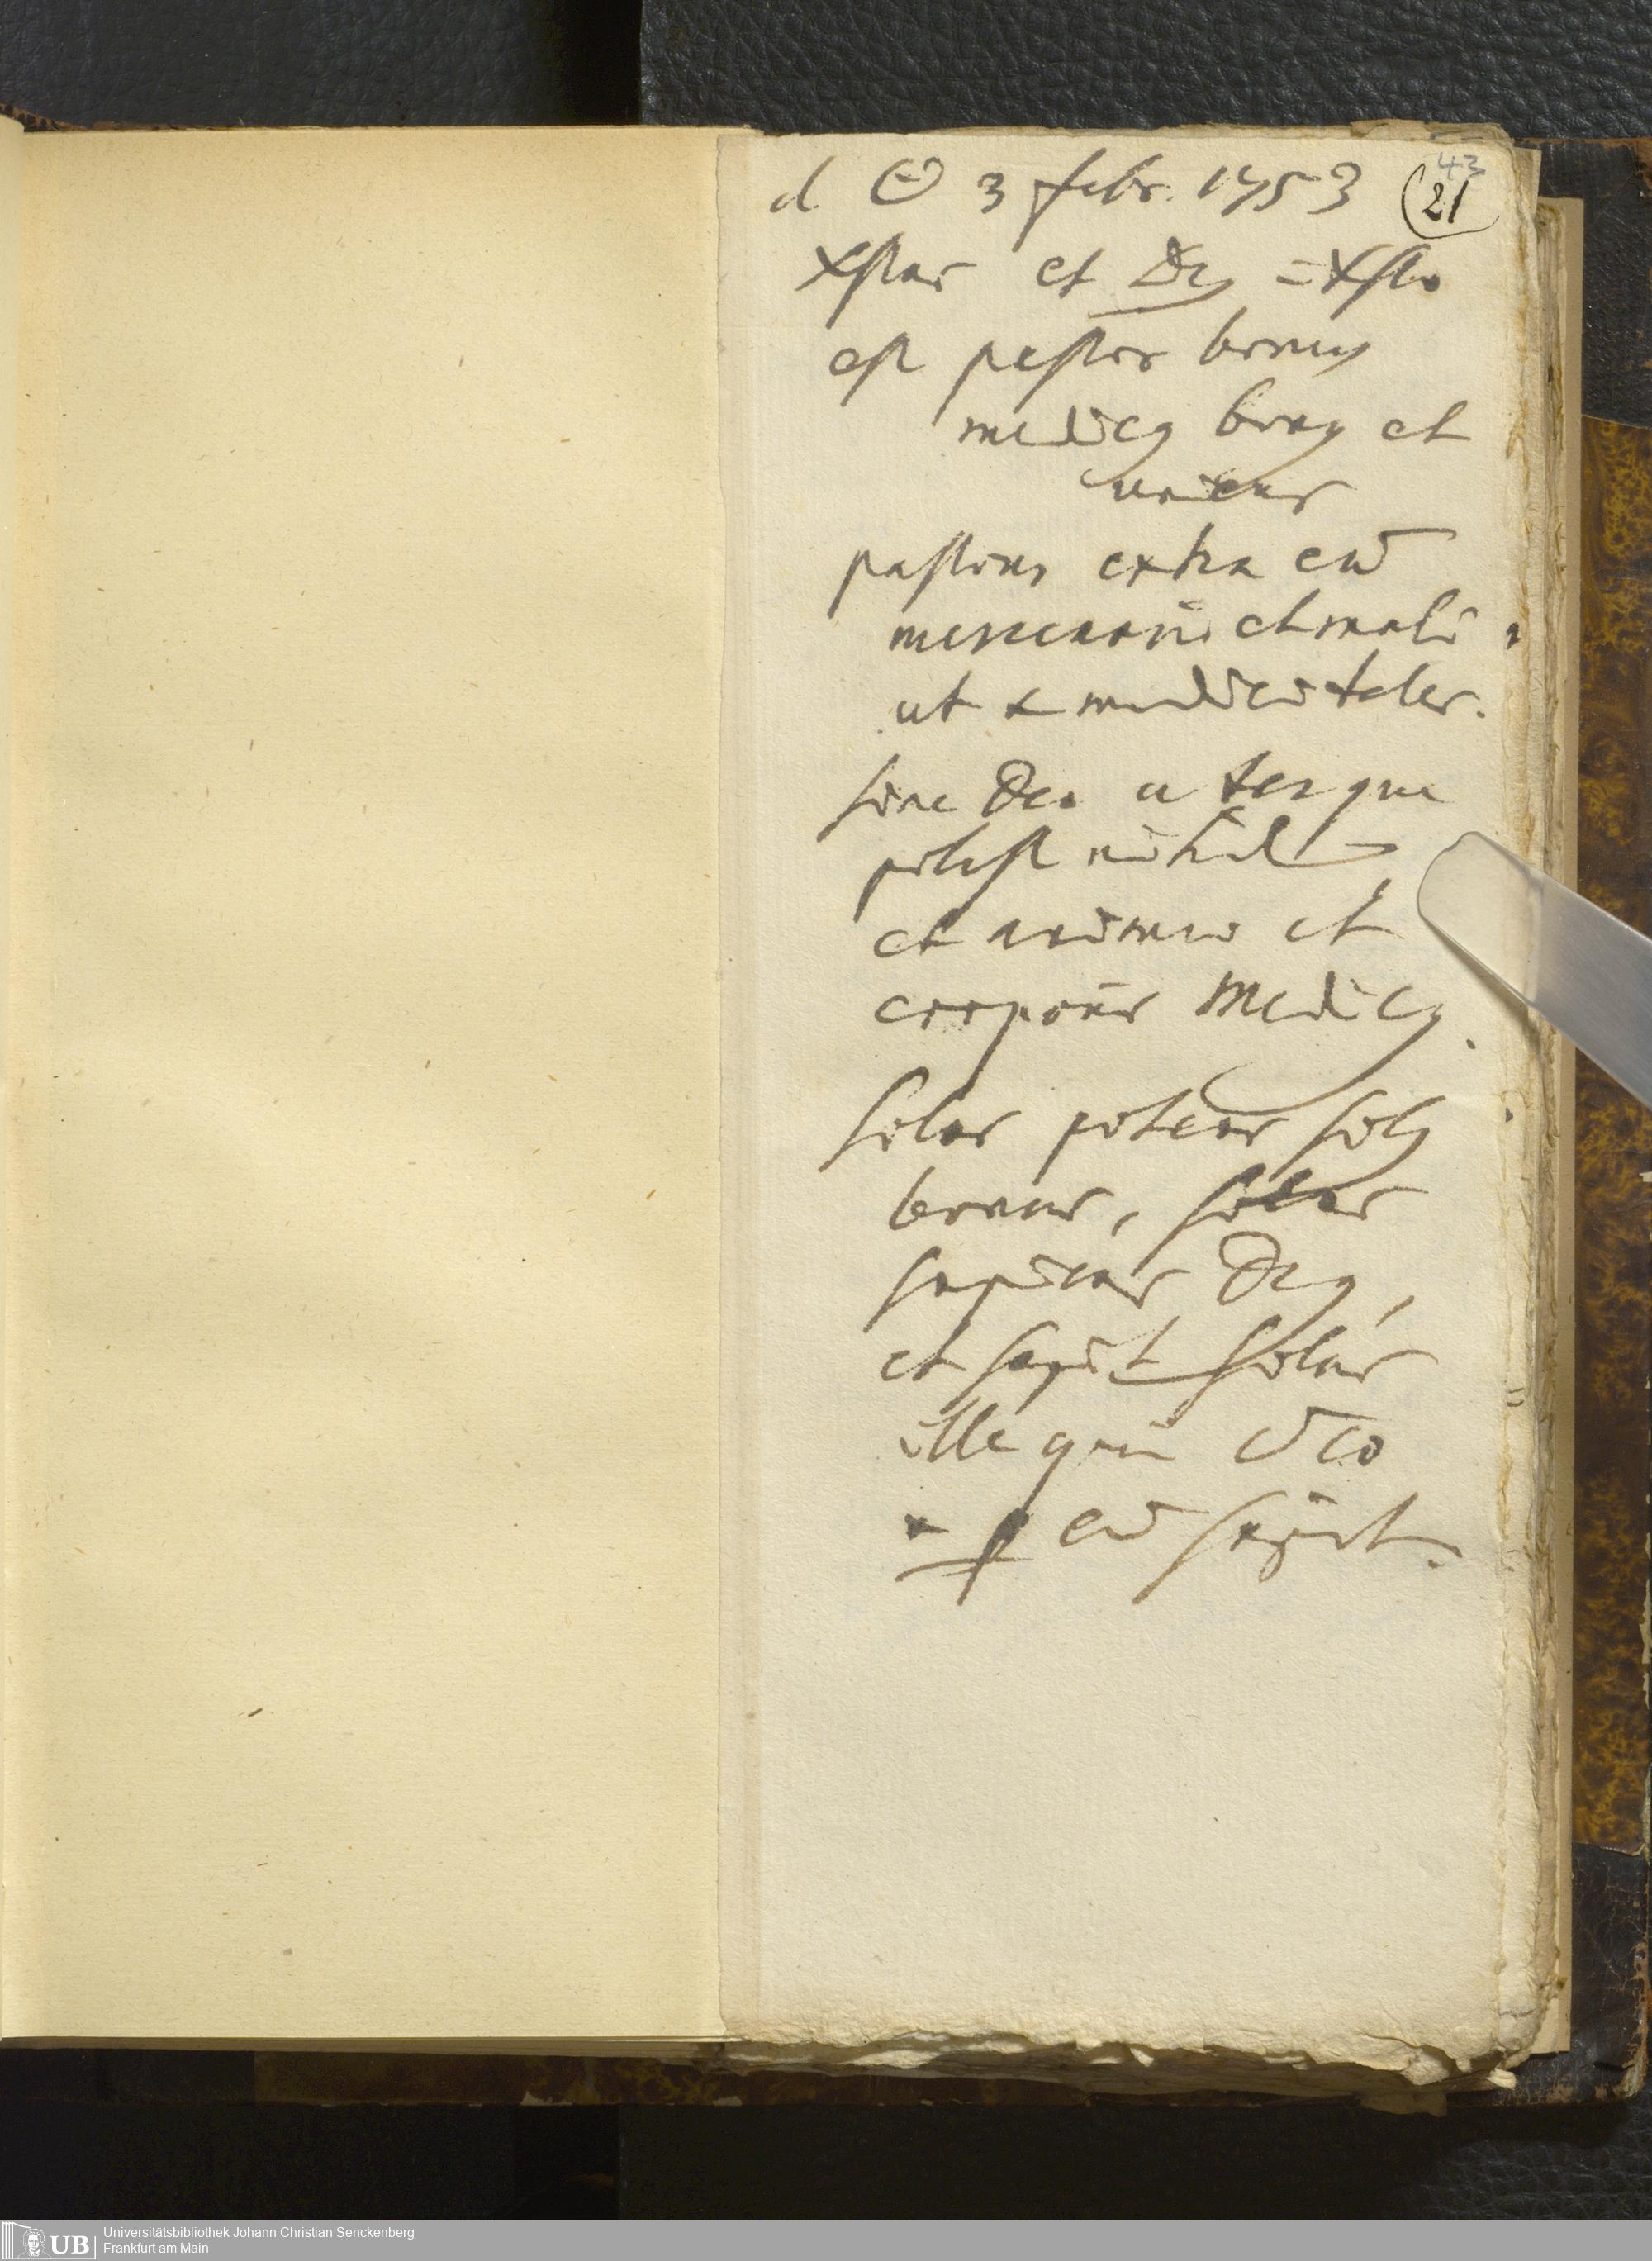 43
d ☉ 3 febr. 1753 (21
Xstus et Deus in Xsto
est pastor bonus
medicus bonus et
unicus
pastores extra eū
mercenarii et mali
ut & medici tales.
sine Deo uterque
potest nihil,
et animae et
corporis Medicus.
solus potens solus
bonus, solus
sapiens Deus,
et sapit solus
ille qui in eo
& p eū sapit.
UB Universitätsbibliothek Johann Christian Senckenberg
Frankfurt am Main